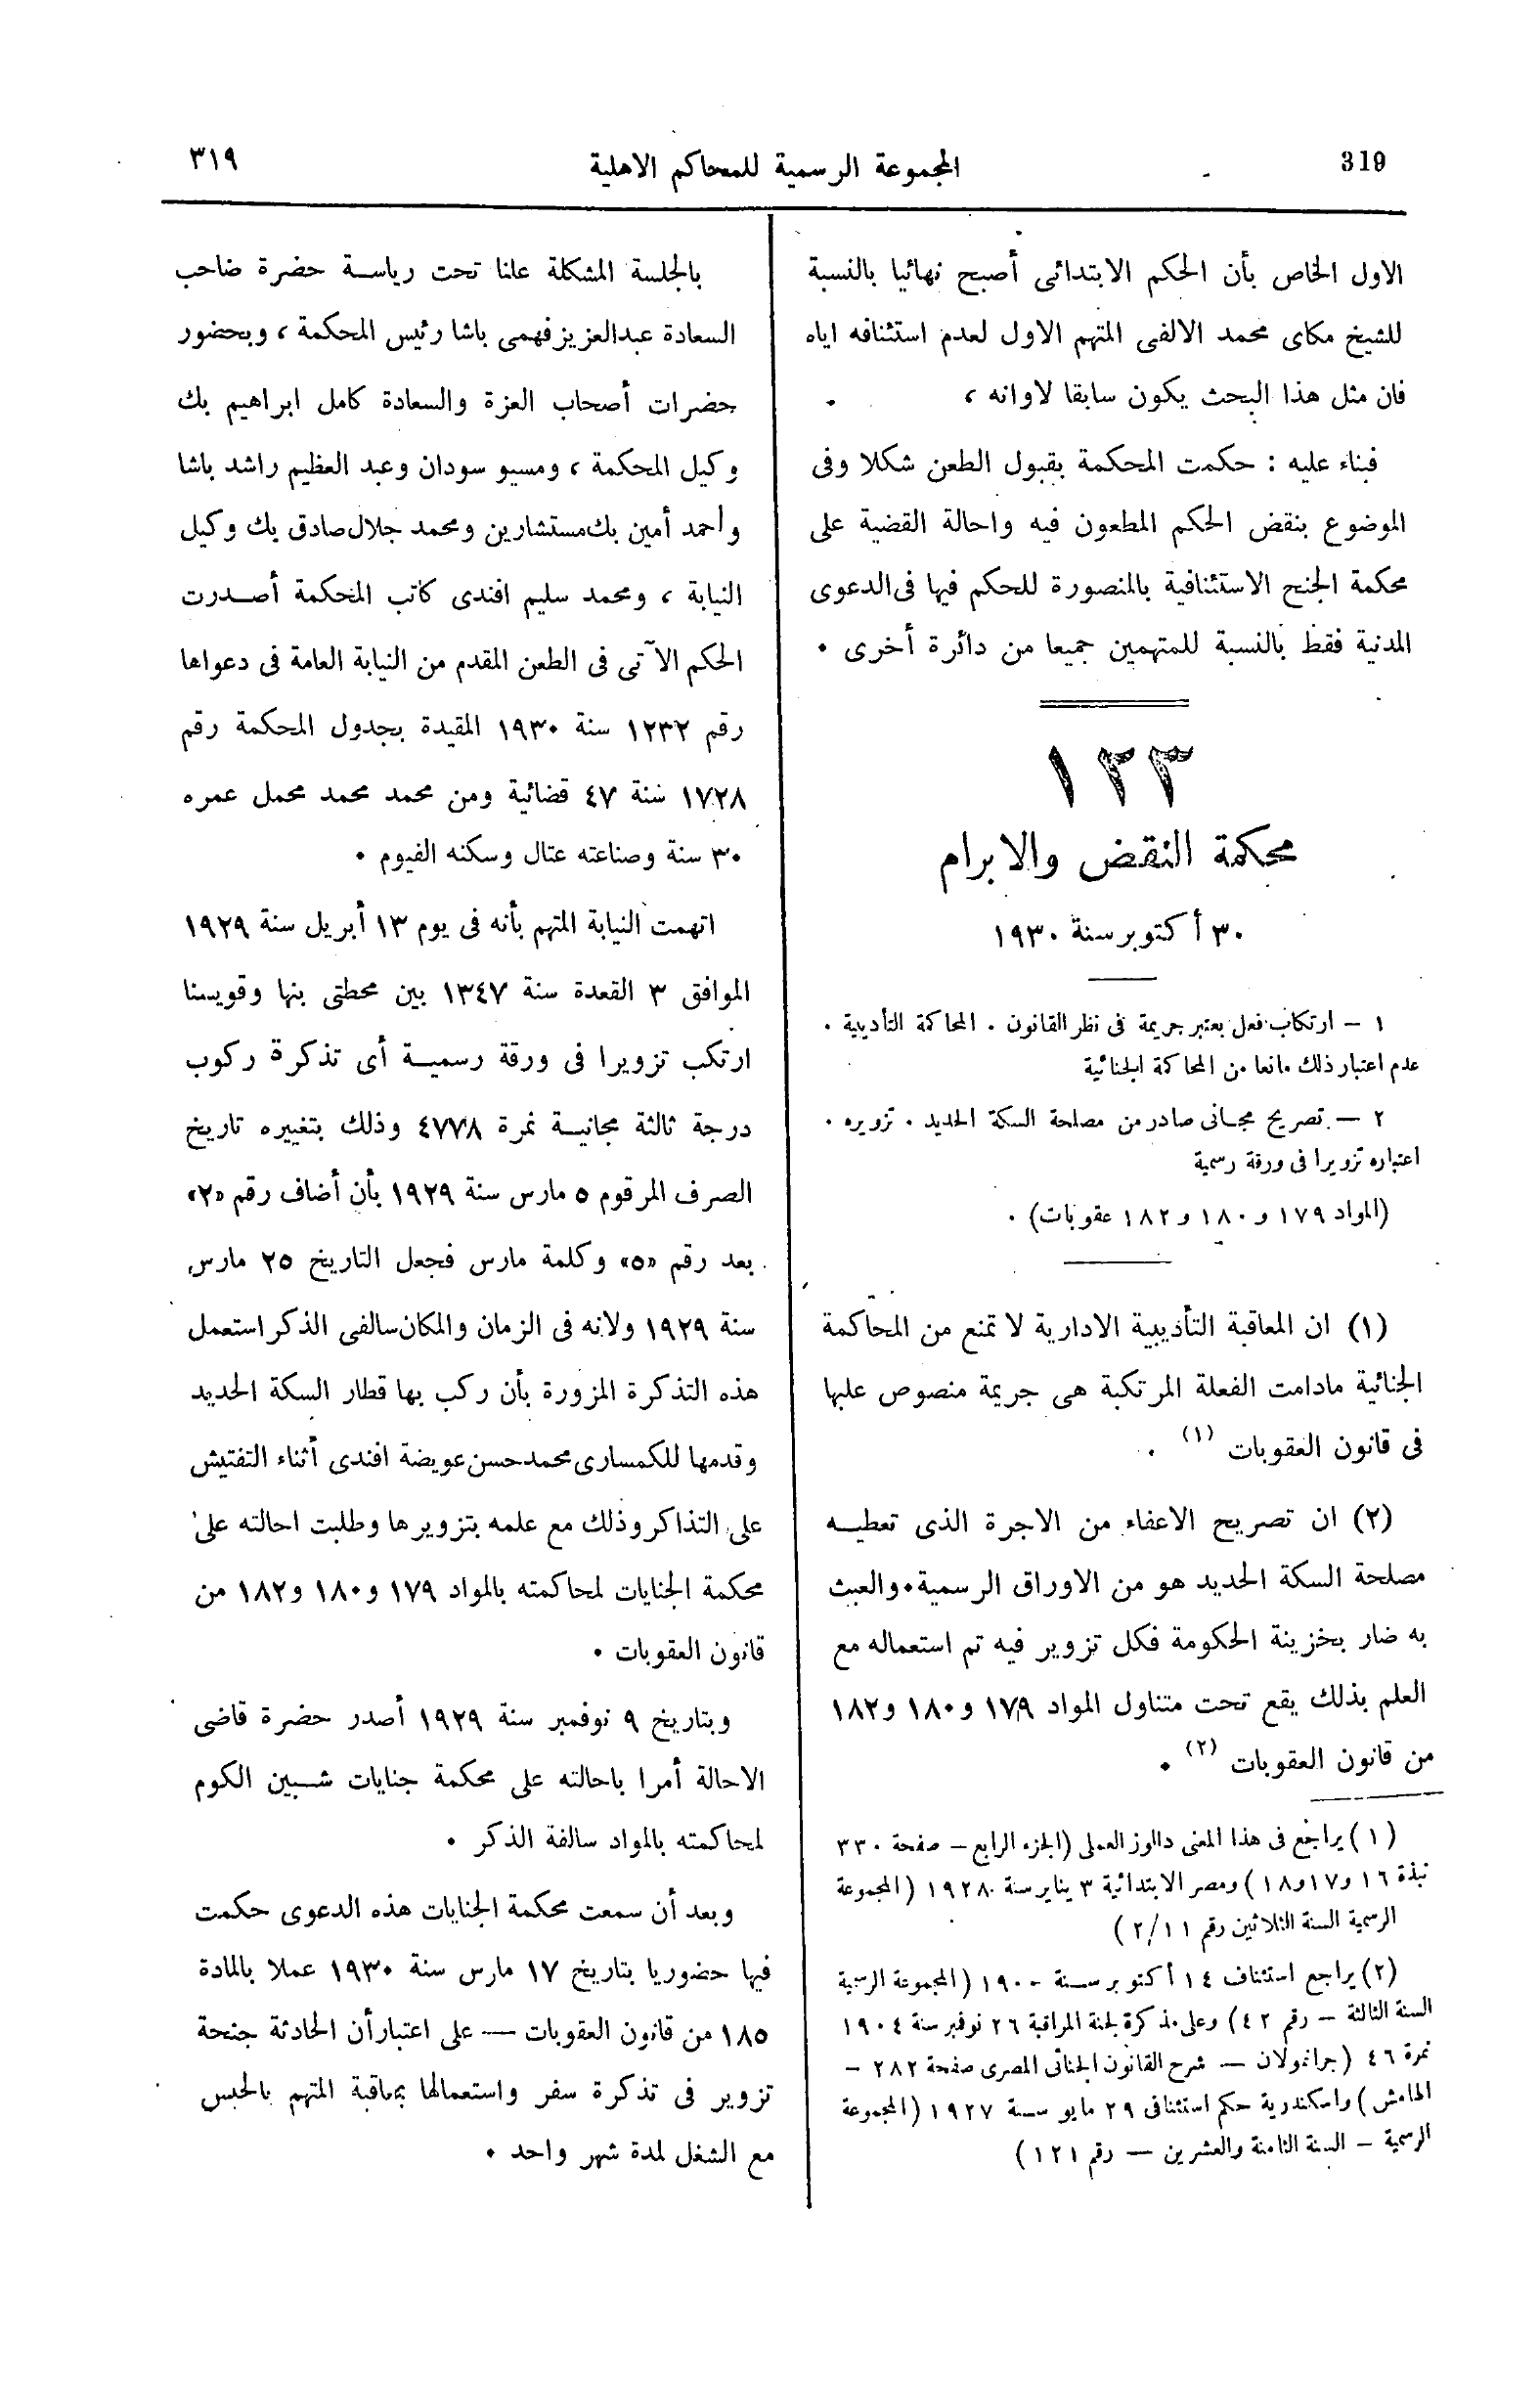 319
المجموعة الرسمية للمحاكم الاهلية
٣١٩
الاول الخاص بأن الحكم الابتدائى أصبح نهائيا بالنسبة
للشيخ مكاى محمد الالفى المتهم الاول لعدم استئنافه اياه
فان مثل هذا البحث يكون سابقا لاوانه ،
فبناء عليه : حكمت المحكمة بقبول الطعن شكلا وفى
الموضوع بنقض الحكم المطعون فيه واحالة القضية على
محكمة الجنح الاستئنافية بالمنصورة للحكم فيها فى الدعوى
المدنية فقط بالنسبة للمتهمين جميعا من دائرة أخرى .
١٢٣
محكمة النقض والابرام
٣٠ أكتوبر سنة ١٩٣٠
١ – ارتكاب فعل يعتبر جريمة فى نظر القانون . المحاكمة التأديبية .
عدم اعتبار ذلك مانعا من المحاكمة الجنائية
٢ — تصريح مجانى صادر من مصلحة السكة الحديد . تزويره .
اعتباره تزويرا فى ورقة رسمية
(المواد ١٧٩ و ١٨٠ و ١٨٢ عقوبات) .
(١) ان المعاقبة التأديبية الادارية لا تمنع من المحاكمة
الجنائية مادامت الفعلة المرتكبة هى جريمة منصوص عليها
فى قانون العقوبات (١) .
(٢) ان تصريح الاعفاء من الاجرة الذى تعطيـه
مصلحة السكة الحديد هو من الاوراق الرسمية . والعبث
به ضار بخزينة الحكومة فكل تزوير فيه تم استعماله مع
العلم بذلك يقع تحت متناول المواد ١٧٩ و ١٨٠ و ١٨٢
من قانون العقوبات (٢) .
(١) يراجع فى هذا المعنى دالوز العملى (الجزء الرابع – صفحة ٣٣٠
نبذة ١٦ و ١٧ و ١٨) ومصر الابتدائية ٣ يناير سنة ١٩٢٨ (المجموعة
الرسمية السنة الثلاثين رقم ٢/١١)
(٢) يراجع استئناف ١٤ أكتوبر سـنة ١٩٠٠ (المجموعة الرسمية
السنة الثالثة – رقم ٤٢) وعلى مذكرة لجنة المراقبة ٢٦ نوفمبر سنة ١٩٠٤
نمرة ٤٦ (جرانمولان — شرح القانون الجنائى المصرى صفحة ٢٨٢ –
الهامش) واسكندرية حكم استئنافى ٢٩ مايو سـنة ١٩٢٧ (المجموعة
الرسمية – السنة الثامنة والعشرين — رقم ١٢١)
بالجلسة المشكلة علنا تحت رياسـة حضرة صاحب
السعادة عبدالعزيز فهمى باشا رئيس المحكمة ، وبحضور
حضرات أصحاب العزة والسعادة كامل ابراهيم بك
وكيل المحكمة ، ومسيو سودان وعبد العظيم راشد باشا
وأحمد أمين بك مستشارين ومحمد جلال صادق بك وكيل
النيابة ، ومحمد سليم افندى كاتب المحكمة أصـدرت
الحكم الآتى فى الطعن المقدم من النيابة العامة فى دعواها
رقم ١٢٣٢ سنة ١٩٣٠ المقيدة بجدول المحكمة رقم
١٧٢٨ سنة ٤٧ قضائية ومن محمد محمد محمل عمره
٣٠ سنة وصناعته عتال وسكنه الفيوم .
اتهمت النيابة المتهم بأنه فى يوم ١٣ أبريل سنة ١٩٢٩
الموافق ٣ القعدة سنة ١٣٤٧ بين محطتى بنها وقويسنا
ارتكب تزويرا فى ورقة رسميـة أى تذكرة ركوب
درجة ثالثة مجانيـة نمرة ٤٧٧٨ وذلك بتغييره تاريخ
الصرف المرقوم ٥ مارس سنة ١٩٢٩ بأن أضاف رقم «٢»
بعد رقم «٥» وكلمة مارس فجعل التاريخ ٢٥ مارس
سنة ١٩٢٩ ولانه فى الزمان والمكان سالفى الذكر استعمل
هذه التذكرة المزورة بأن ركب بها قطار السكة الحديد
وقدمها للكمسارى محمد حسن عويضة افندى أثناء التفتيش
على التذاكر وذلك مع علمه بتزويرها وطلبت احالته على
محكمة الجنايات لمحاكمته بالمواد ١٧٩ و ١٨٠ و ١٨٢ من
قانون العقوبات .
وبتاريخ ٩ نوفمبر سنة ١٩٢٩ أصدر حضرة قاضى
الاحالة أمرا باحالته على محكمة جنايات شـبين الكوم
لمحاكمته بالمواد سالفة الذكر .
وبعد أن سمعت محكمة الجنايات هذه الدعوى حكمت
فيها حضوريا بتاريخ ١٧ مارس سنة ١٩٣٠ عملا بالمادة
١٨٥ من قانون العقوبات — على اعتبار أن الحادثة جنحة
تزوير فى تذكرة سفر واستعمالها بمعاقبة المتهم بالحبس
مع الشغل لمدة شهر واحد .